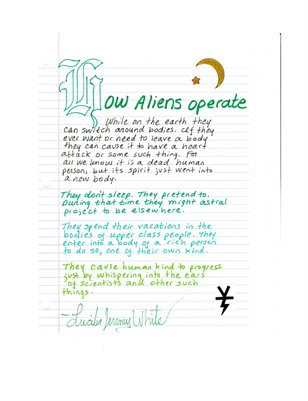 How Aliens operate
While on the earth they
can switch around bodies. If they
ever want or need to leave a body
they can cause it to have a heart
attack or some such thing. For
all we know it is a dead human
person, but its spirit just went into
a new body.
They don't sleep. They pretend to.
During that time they might astral
project to be elsewhere.
They spend their vacations in the
bodies of upper class people. They
enter into a body of a rich person
to do so, one of their own kind.
They cause human kind to progress
just by whispering into the ears
of scientists and other such
things.
Jeremy White